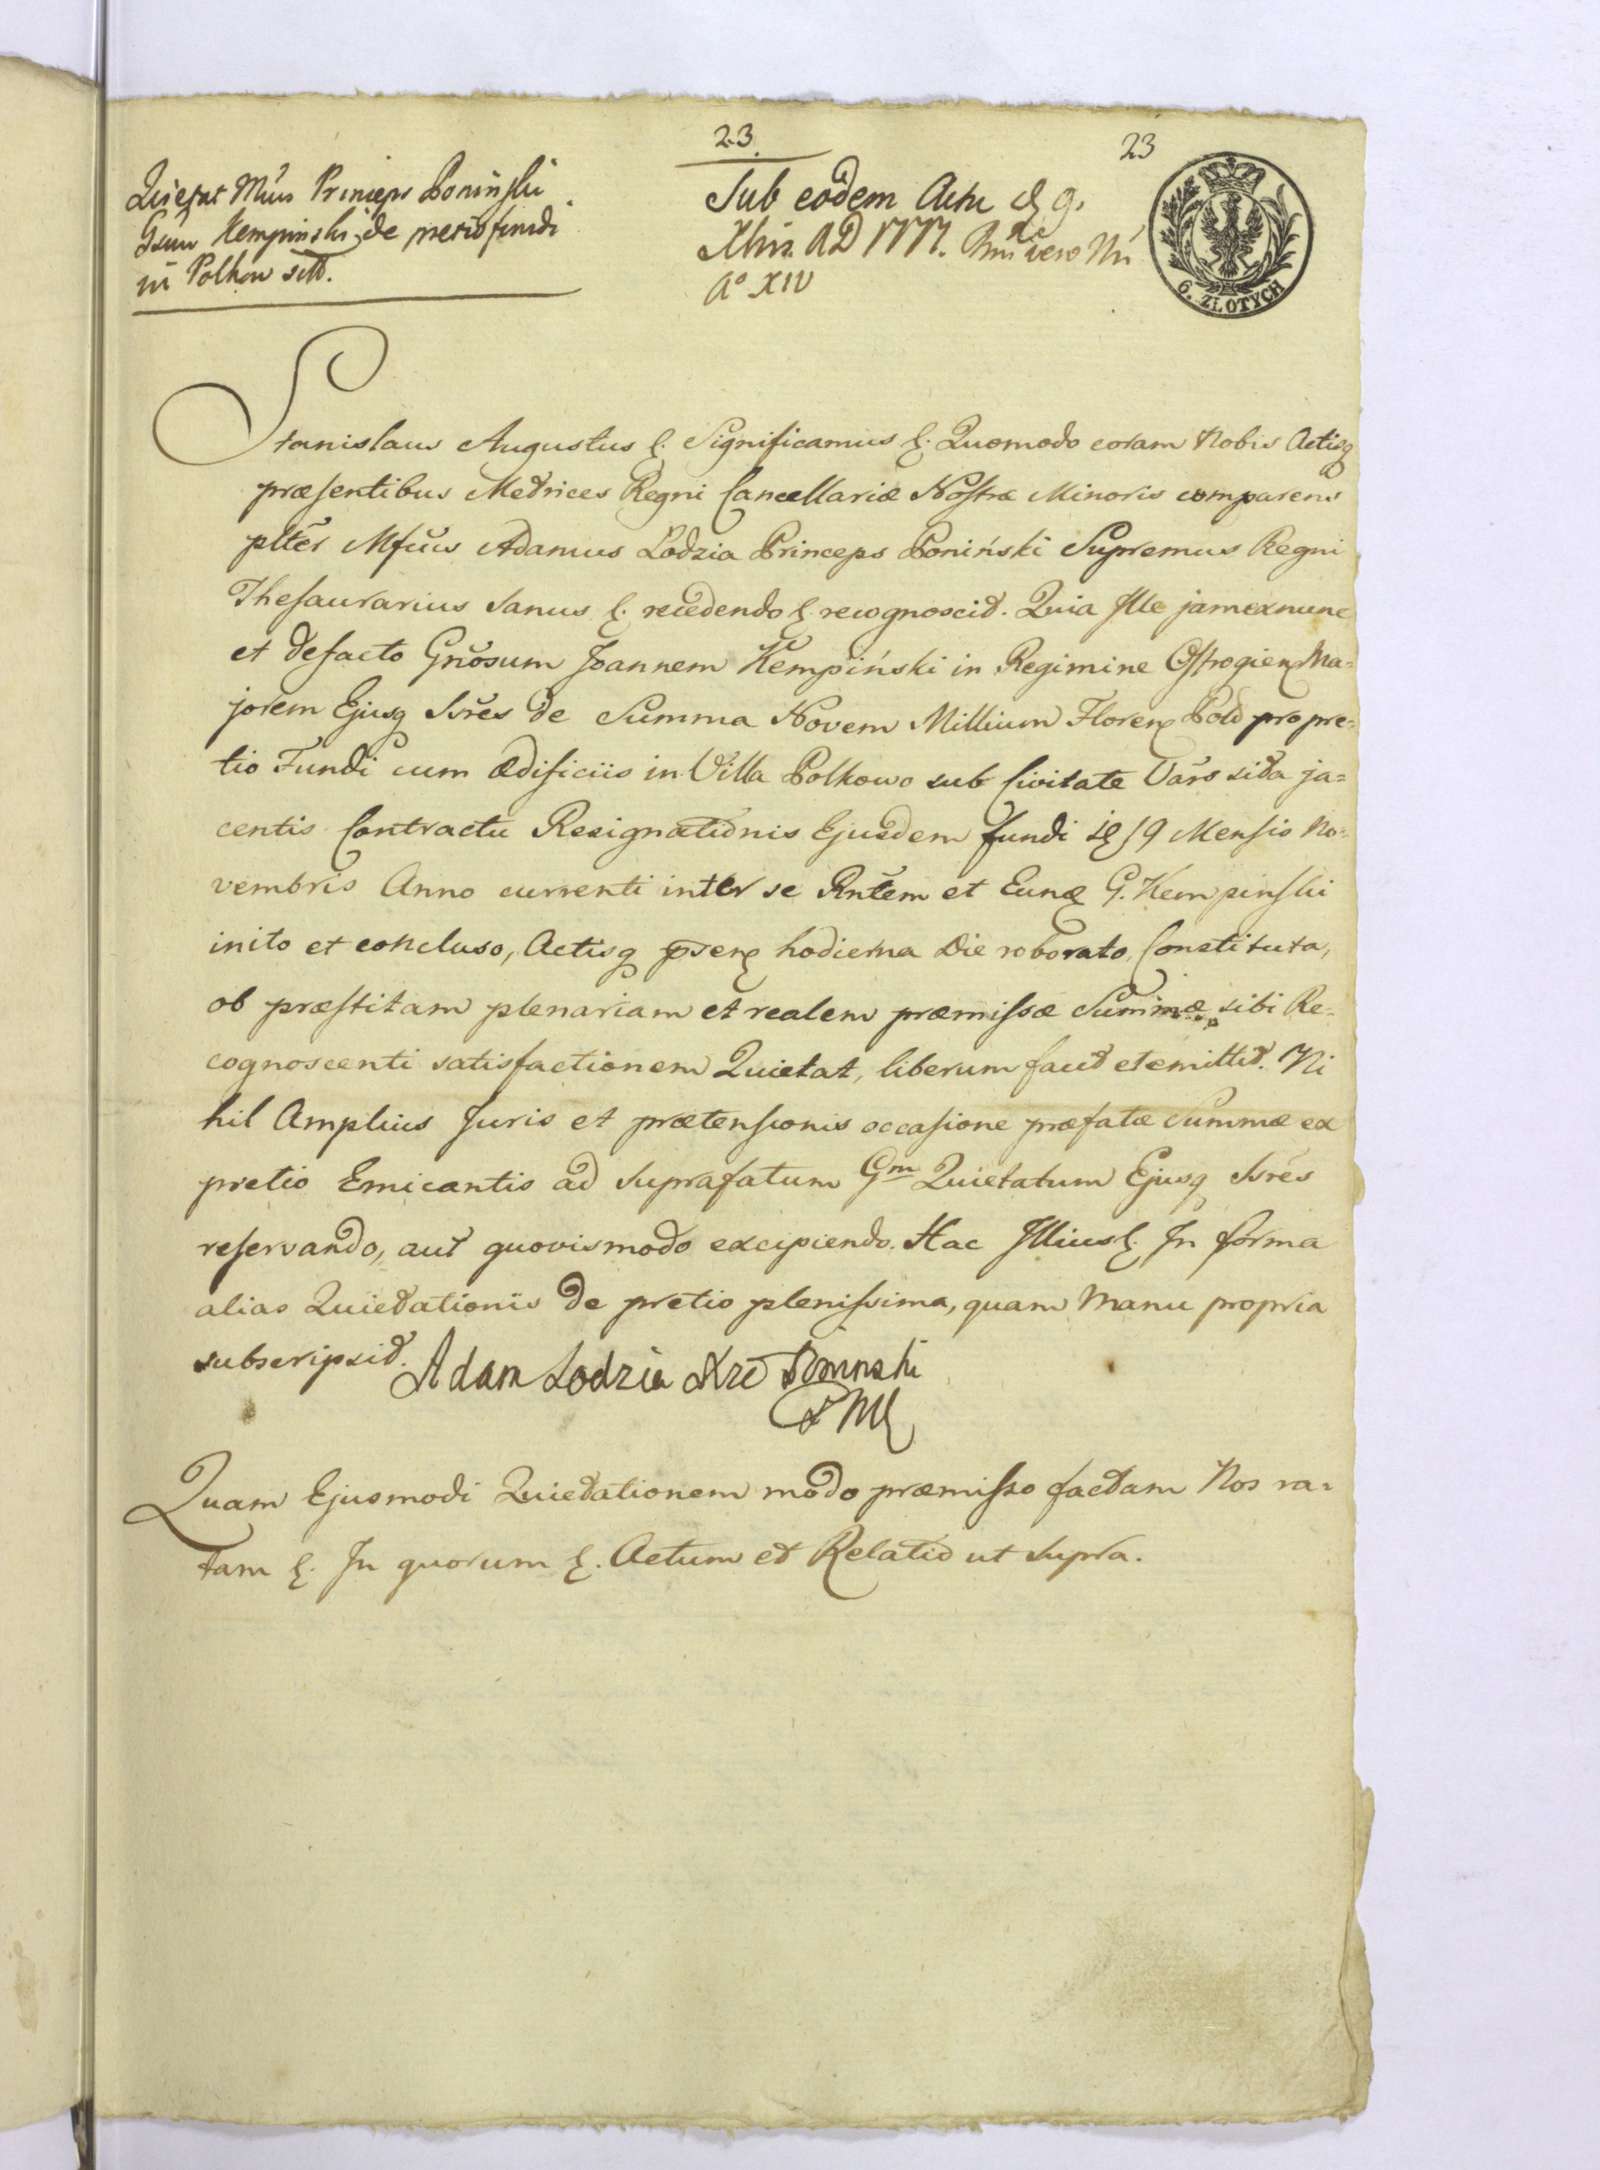 23.
23
Quietat Mcus Princeps Poninski
Gsum Kempinski de pretio fundi
in Polkow sitt.
Sub eodem Actu
Xbris. AD 1777. vero
A° XIV
6. ZŁOTYCH
Stanislaus Augustus &. Significamus &. Quomodo coram Nobis Actisq
præsentibus Metrices Regni Cancellariæ Nostræ Minoris comparens
plter Mfcus Adamus Lodzia Princeps Poniński Supremus Regni
Thesaurarius Sanus &. recedendo &. recognoscit. Quia Ille jam exnunc
et defacto Gnosum Joannem Kempiński in Regimine Ostrogien Ma=
jorem Ejusq Ssres de Summa Novem Millium Floren Pold pro pre=
tio Fundi cum Ædificiis in Villa Polkowo sub Civitate Vars sita ja=
centis Contractu Resignationis Ejusdem fundi 19 Mensis No=
vembris Anno currenti inter se Rntem et Eund G. Kempinski
inito et concluso, Actisq psen hodierna Die roborato, Constituta,
ob præstitam plenariam et realem præmissæ Summæ sibi Re=
cognoscenti satisfactionem Quietat, liberum facit et emittit. Ni
hil Amplius Juris et prætensionis occasione præfatæ Summæ ex
pretio Emicantis ad suprafatum Gm Quietatum Ejusq Ssres
reservando, aut quovismodo excipiendo. Hac Illius &. In forma
alias Quietationis de pretio plenissima, quam Manu propria
subscripsit. Adam Lodzia Xże Poninski
Quam Ejusmodi Quietationem modo præmisso factam Nos ra=
tam &. In quorum &. Actum et Relatio ut supra.